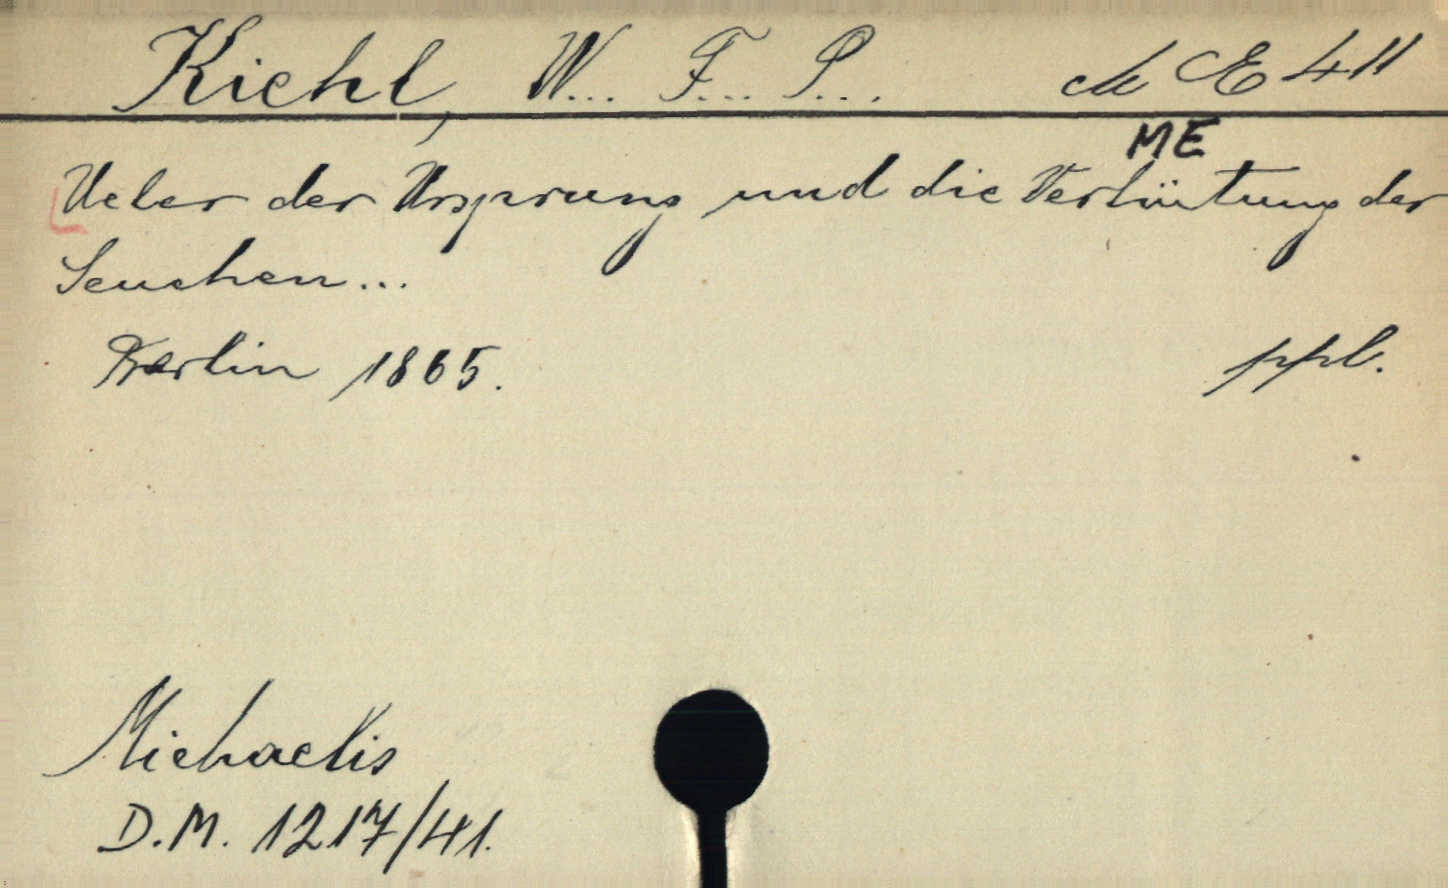 Kiehl, W... F... P...
E 411
ME
Ueber der Ursprung und die Verhütung der
Seuchen...
Berlin 1865.
ppb.
Michaelis
D.M. 1217/41.